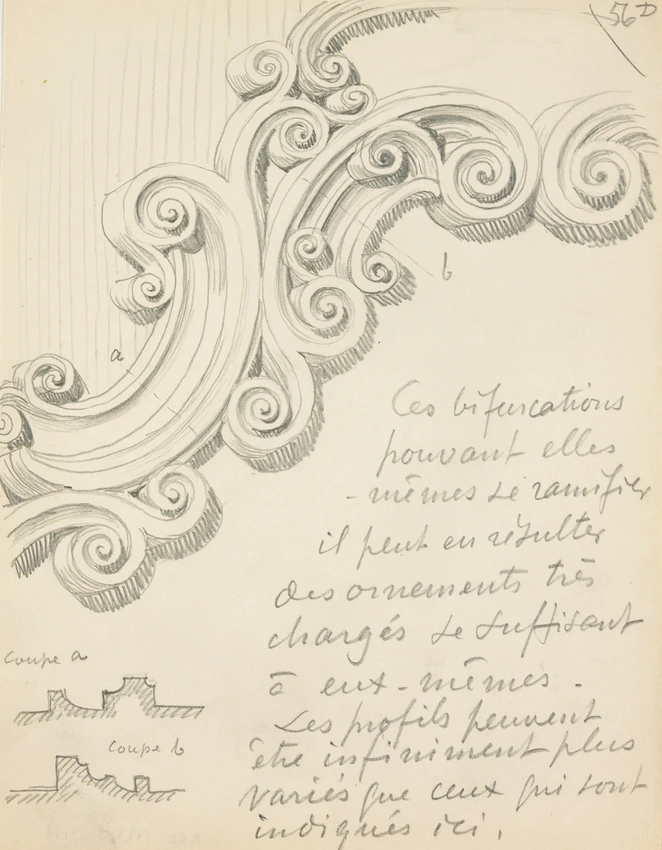 56 D
b
a
Ces bifurcations
pouvant elles
-mêmes se ramifier
il peut en résulter
des ornements très
chargés se suffisant
à eux-mêmes.
Les profils peuvent
être infiniment plus
variés que ceux qui sont
indiqués ici.
coupe a
coupe b